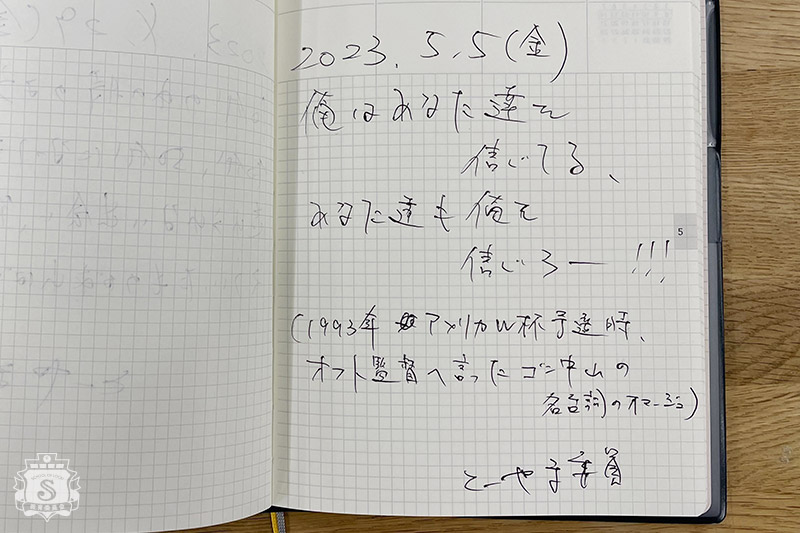 2023.5.5(金)
俺はあなた達を
信じてる、
あなた達も俺を
信じろー!!!
(1993年 アメリカW杯予選時、
オフト監督へ言ったゴン中山の
名台詞のオマージュ)
とーや予委員
5
S